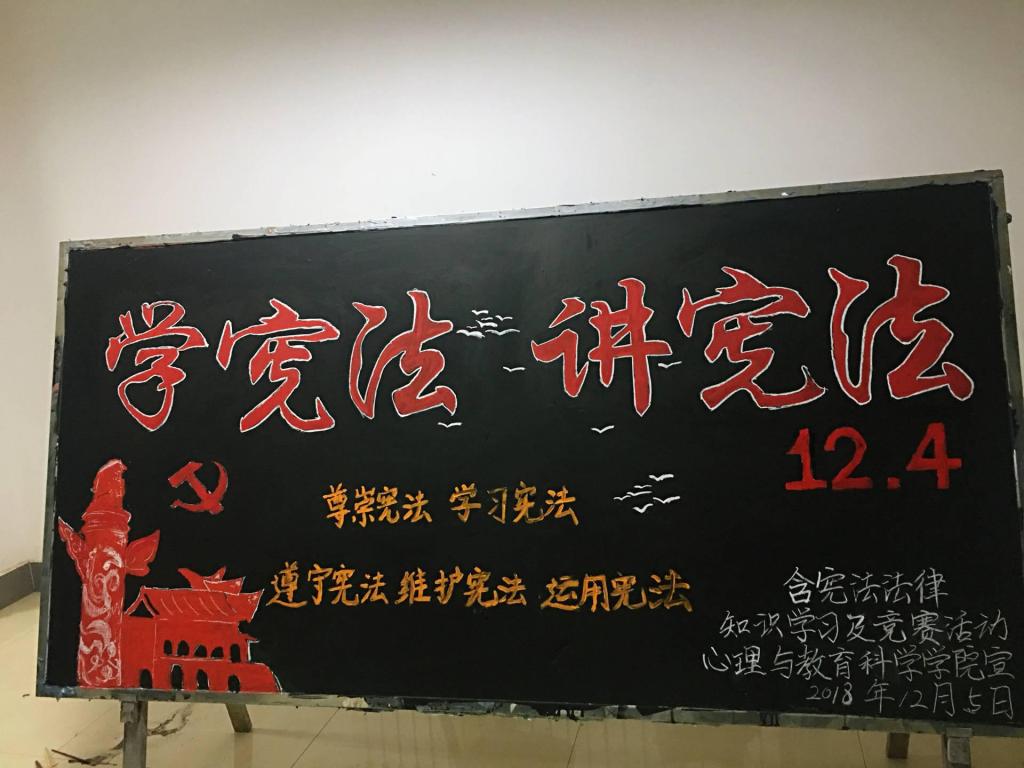 学宪法 讲宪法
12.4
尊崇宪法 学习宪法
遵宁宪法 维护宪法 运用宪法
含宪法法律
知识学习及竞赛活动
心理与教育科学学院宣
2018年12月5日